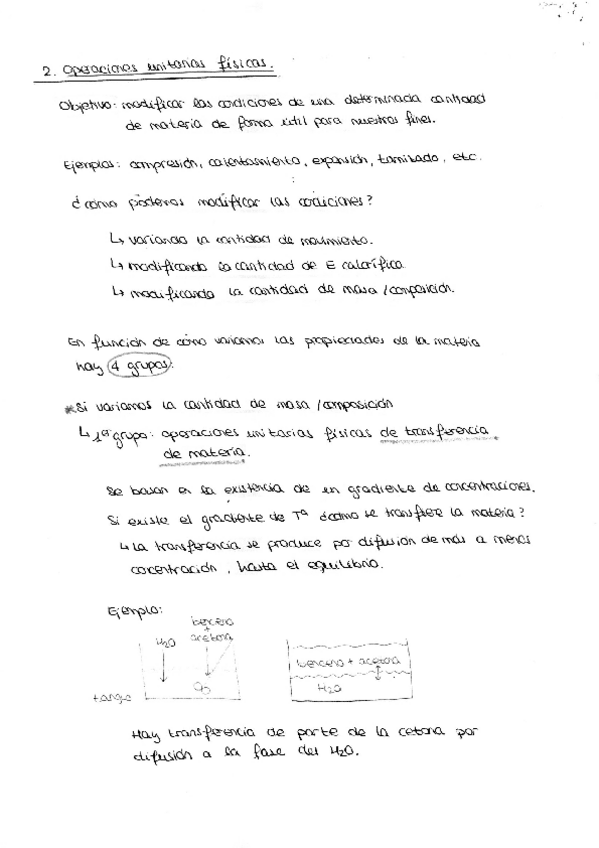 2. Operaciones unitarias físicas.
Objetivo: modificar las condiciones de una determinada cantidad
de materia de forma útil para nuestros fines.
Ejemplos: compresión, calentamiento, expansión, tamizado, etc.
¿cómo podemos modificar las condiciones?
↳ variando la cantidad de movimiento.
↳ modificando la cantidad de E calorífica
↳ modificando la cantidad de masa / composición.
En función de cómo variamos las propiedades de la materia
hay 4 grupos:
* Si variamos la cantidad de masa / composición
↳ 1er grupo: operaciones unitarias físicas de transferencia
de materia.
Se basan en la existencia de un gradiente de concentraciones.
Si existe el gradiente de Tª ¿cómo se transfiere la materia?
↳ La transferencia se produce por difusión de más a menos
concentración, hasta el equilibrio.
Ejemplo:
benceno
+
H2O acetona
tanque
benceno + acetona
H2O
Hay transferencia de parte de la cetona por
difusión a la fase del H2O.